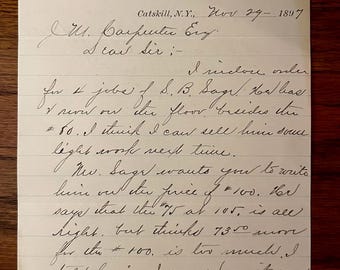 Catskill, N.Y., Nov 29 - 1897
J. M. Carpenter Esq
Dear Sir :-
I inclose order
for 4 jobs of S. B. Sage He has
2 now on the floor. besides the
#80. I think I can sell him some
light work next time.
Mr. Sage wants you to write
him on the price of #100. He
says that the #75 at 105. is all
right. but thinks 73 00 more
for the #100. is too much. I